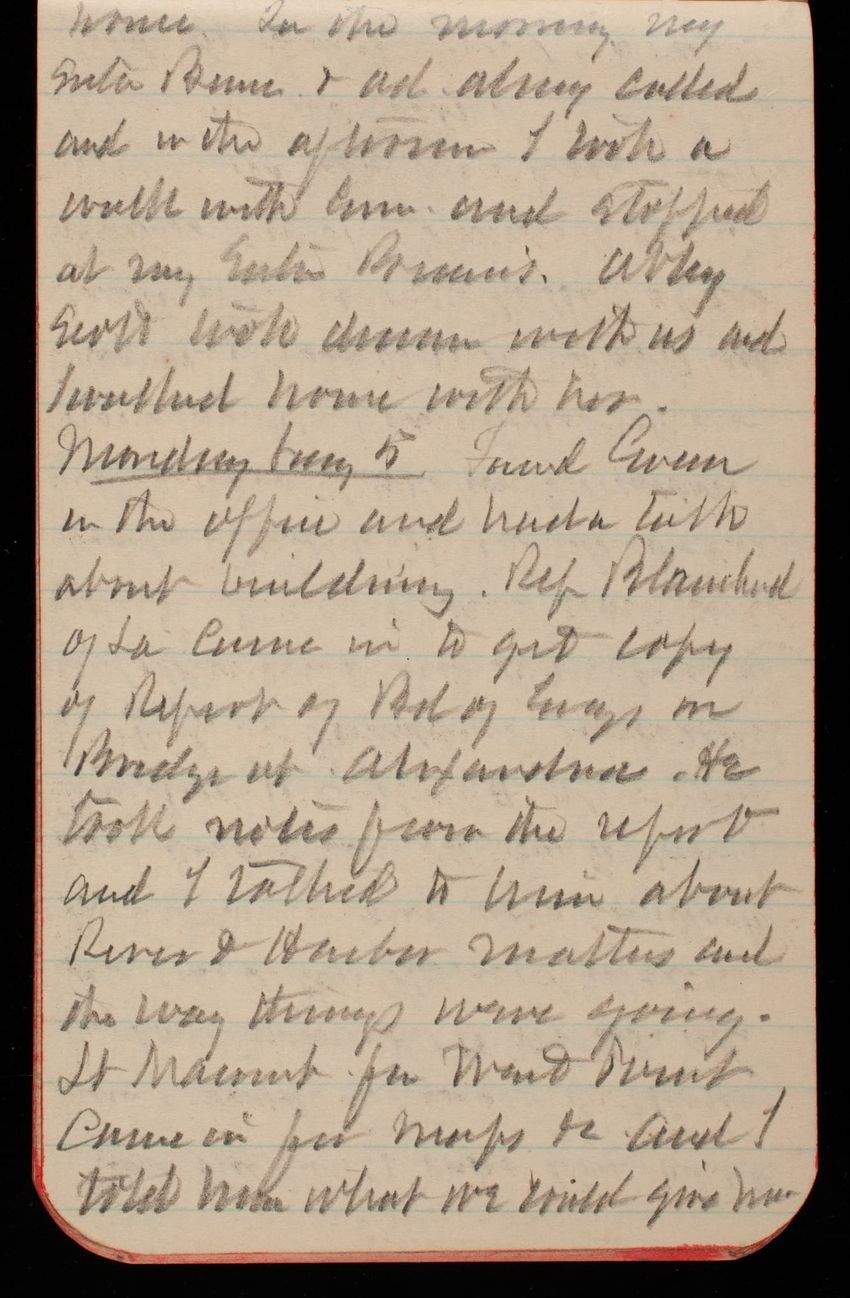 home. In the morning my
Sister & Ad Abney called
and in the afternoon I took a
walk with Em. and stopped
at my Sister Bonnie's. Abby
Scott took dinner with us and
I walked home with her.
Monday 5 Found Greene
in the office and had a talk
about building. Rep Blanchard
of La came in to get copy
of Report of Bd of Engs on
Bridge at Alexandria. He
took notes from the report
and I talked to him about
River & Harbor matters and
the way things were going.
Lt for West Point
Came in for maps &c and I
told him what we could give him